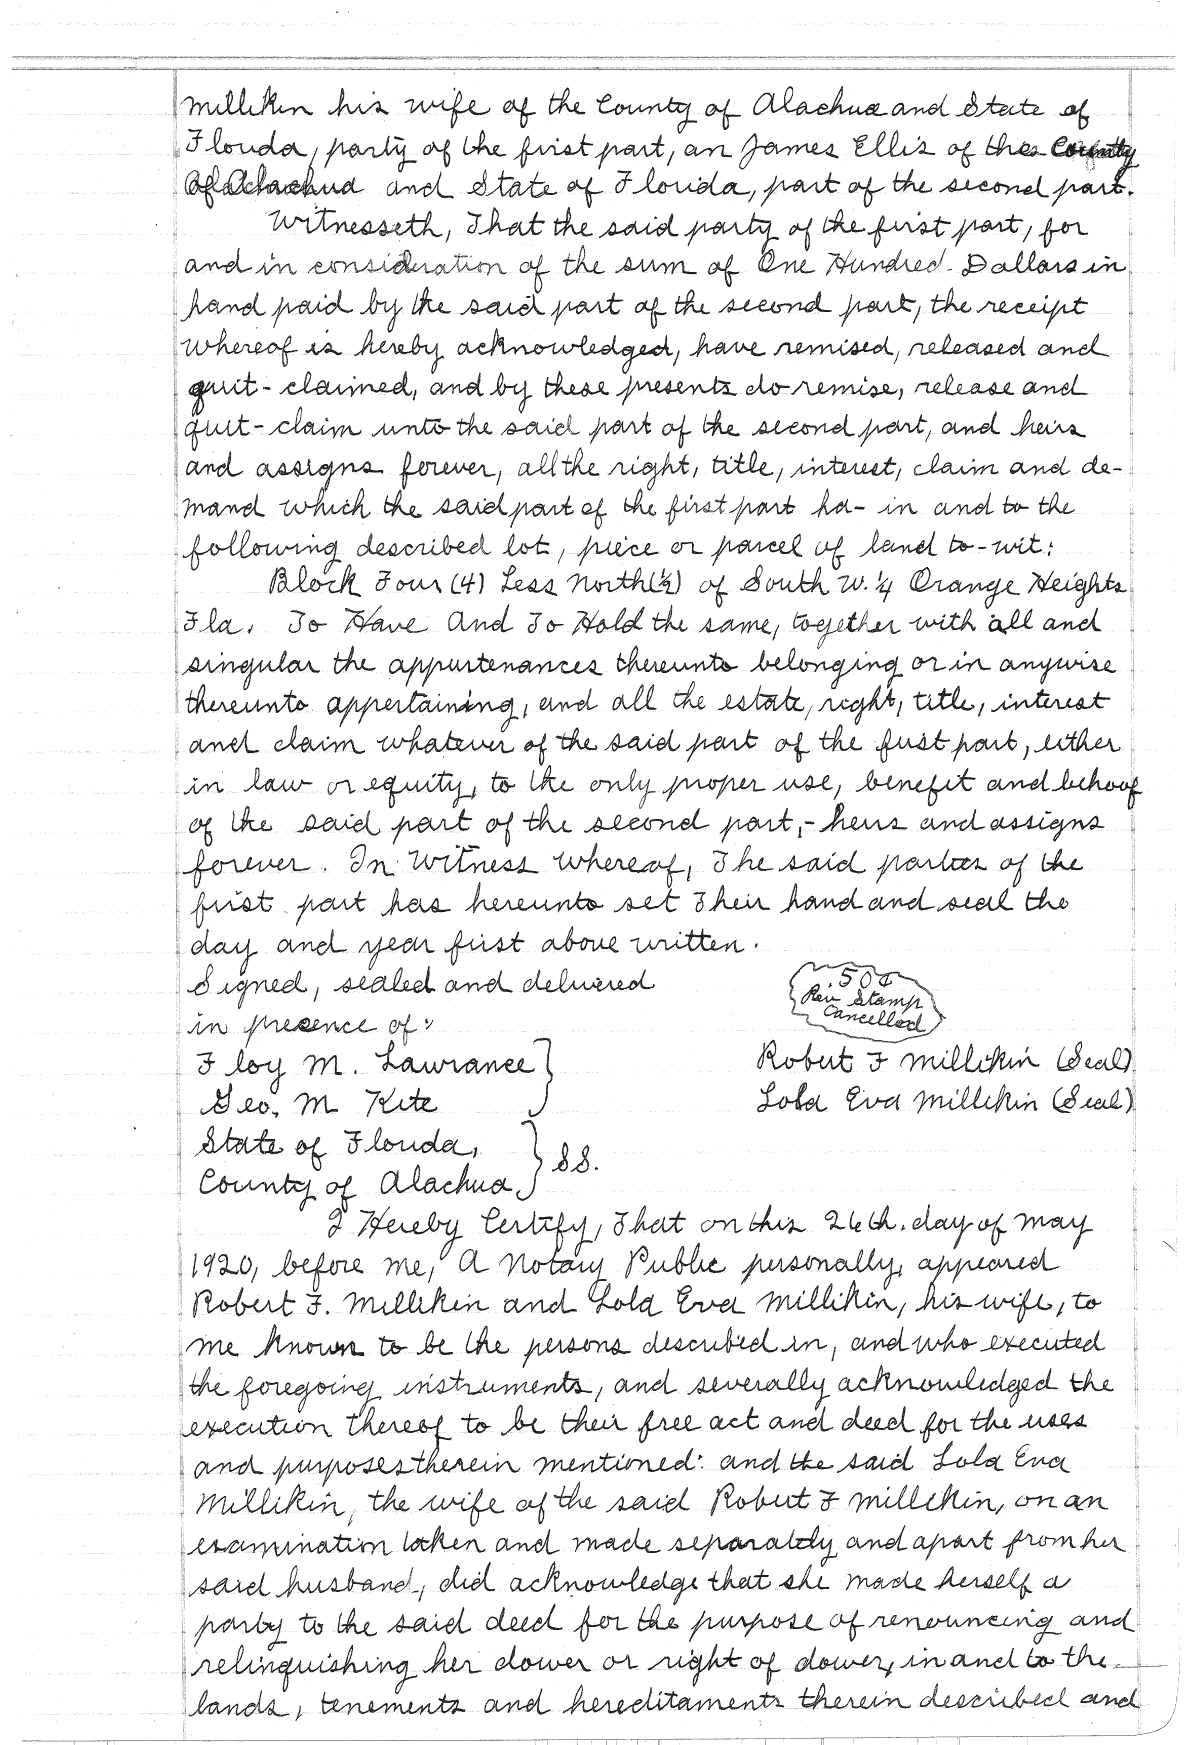 Millikin his wife of the County of Alachua and State of
Florida, party of the first part, an James Ellis of the County
of Alachua and State of Florida, part of the second part.
Witnesseth, That the said party of the first part, for
and in consideration of the sum of One Hundred - Dollars in
hand paid by the said part of the second part, the receipt
whereof is hereby acknowledged, have remised, released and
quit - claimed, and by these presents do remise, release and
quit - claim unto the said part of the second part, and heirs
and assigns forever, all the right, title, interest, claim and de-
mand which the said part of the first part ha- in and to the
following described lot, piece or parcel of land to-wit:
Block Four (4) Less North (½) of South W. ¼ Orange Heights
Fla. To Have And To Hold the same, together with all and
singular the appurtenances thereunto belonging or in anywise
thereunto appertaining, and all the estate, right, title, interest
and claim whatever of the said part of the first part, either
in law or equity, to the only proper use, benefit and behoof
of the said part of the second part,- heirs and assigns
forever. In Witness Whereof, The said parties of the
first part has hereunto set Their hand and seal the
day and year first above written.
Signed, sealed and delivered
in presence of:
.50¢
Rev Stamp
Cancelled
Floy M. Lawrance } Robert F Millikin (Seal)
Geo. M Kite Lola Eva Millikin (Seal)
State of Florida, } SS.
County of Alachua,
I Hereby Certify, That on this 26th. day of May
1920, before me, A Notary Public personally, appeared
Robert F. Millikin and Lola Eva Millikin, his wife, to
me known to be the persons described in, and who executed
the foregoing instruments, and severally acknowledged the
execution thereof to be their free act and deed for the uses
and purposes therein mentioned: and the said Lola Eva
Millikin, the wife of the said Robert F Millikin, on an
examination taken and made separately and apart from her
said husband, did acknowledge that she made herself a
party to the said deed for the purpose of renouncing and
relinquishing her dower or right of dower, in and to the
lands, tenements and hereditaments therein described and